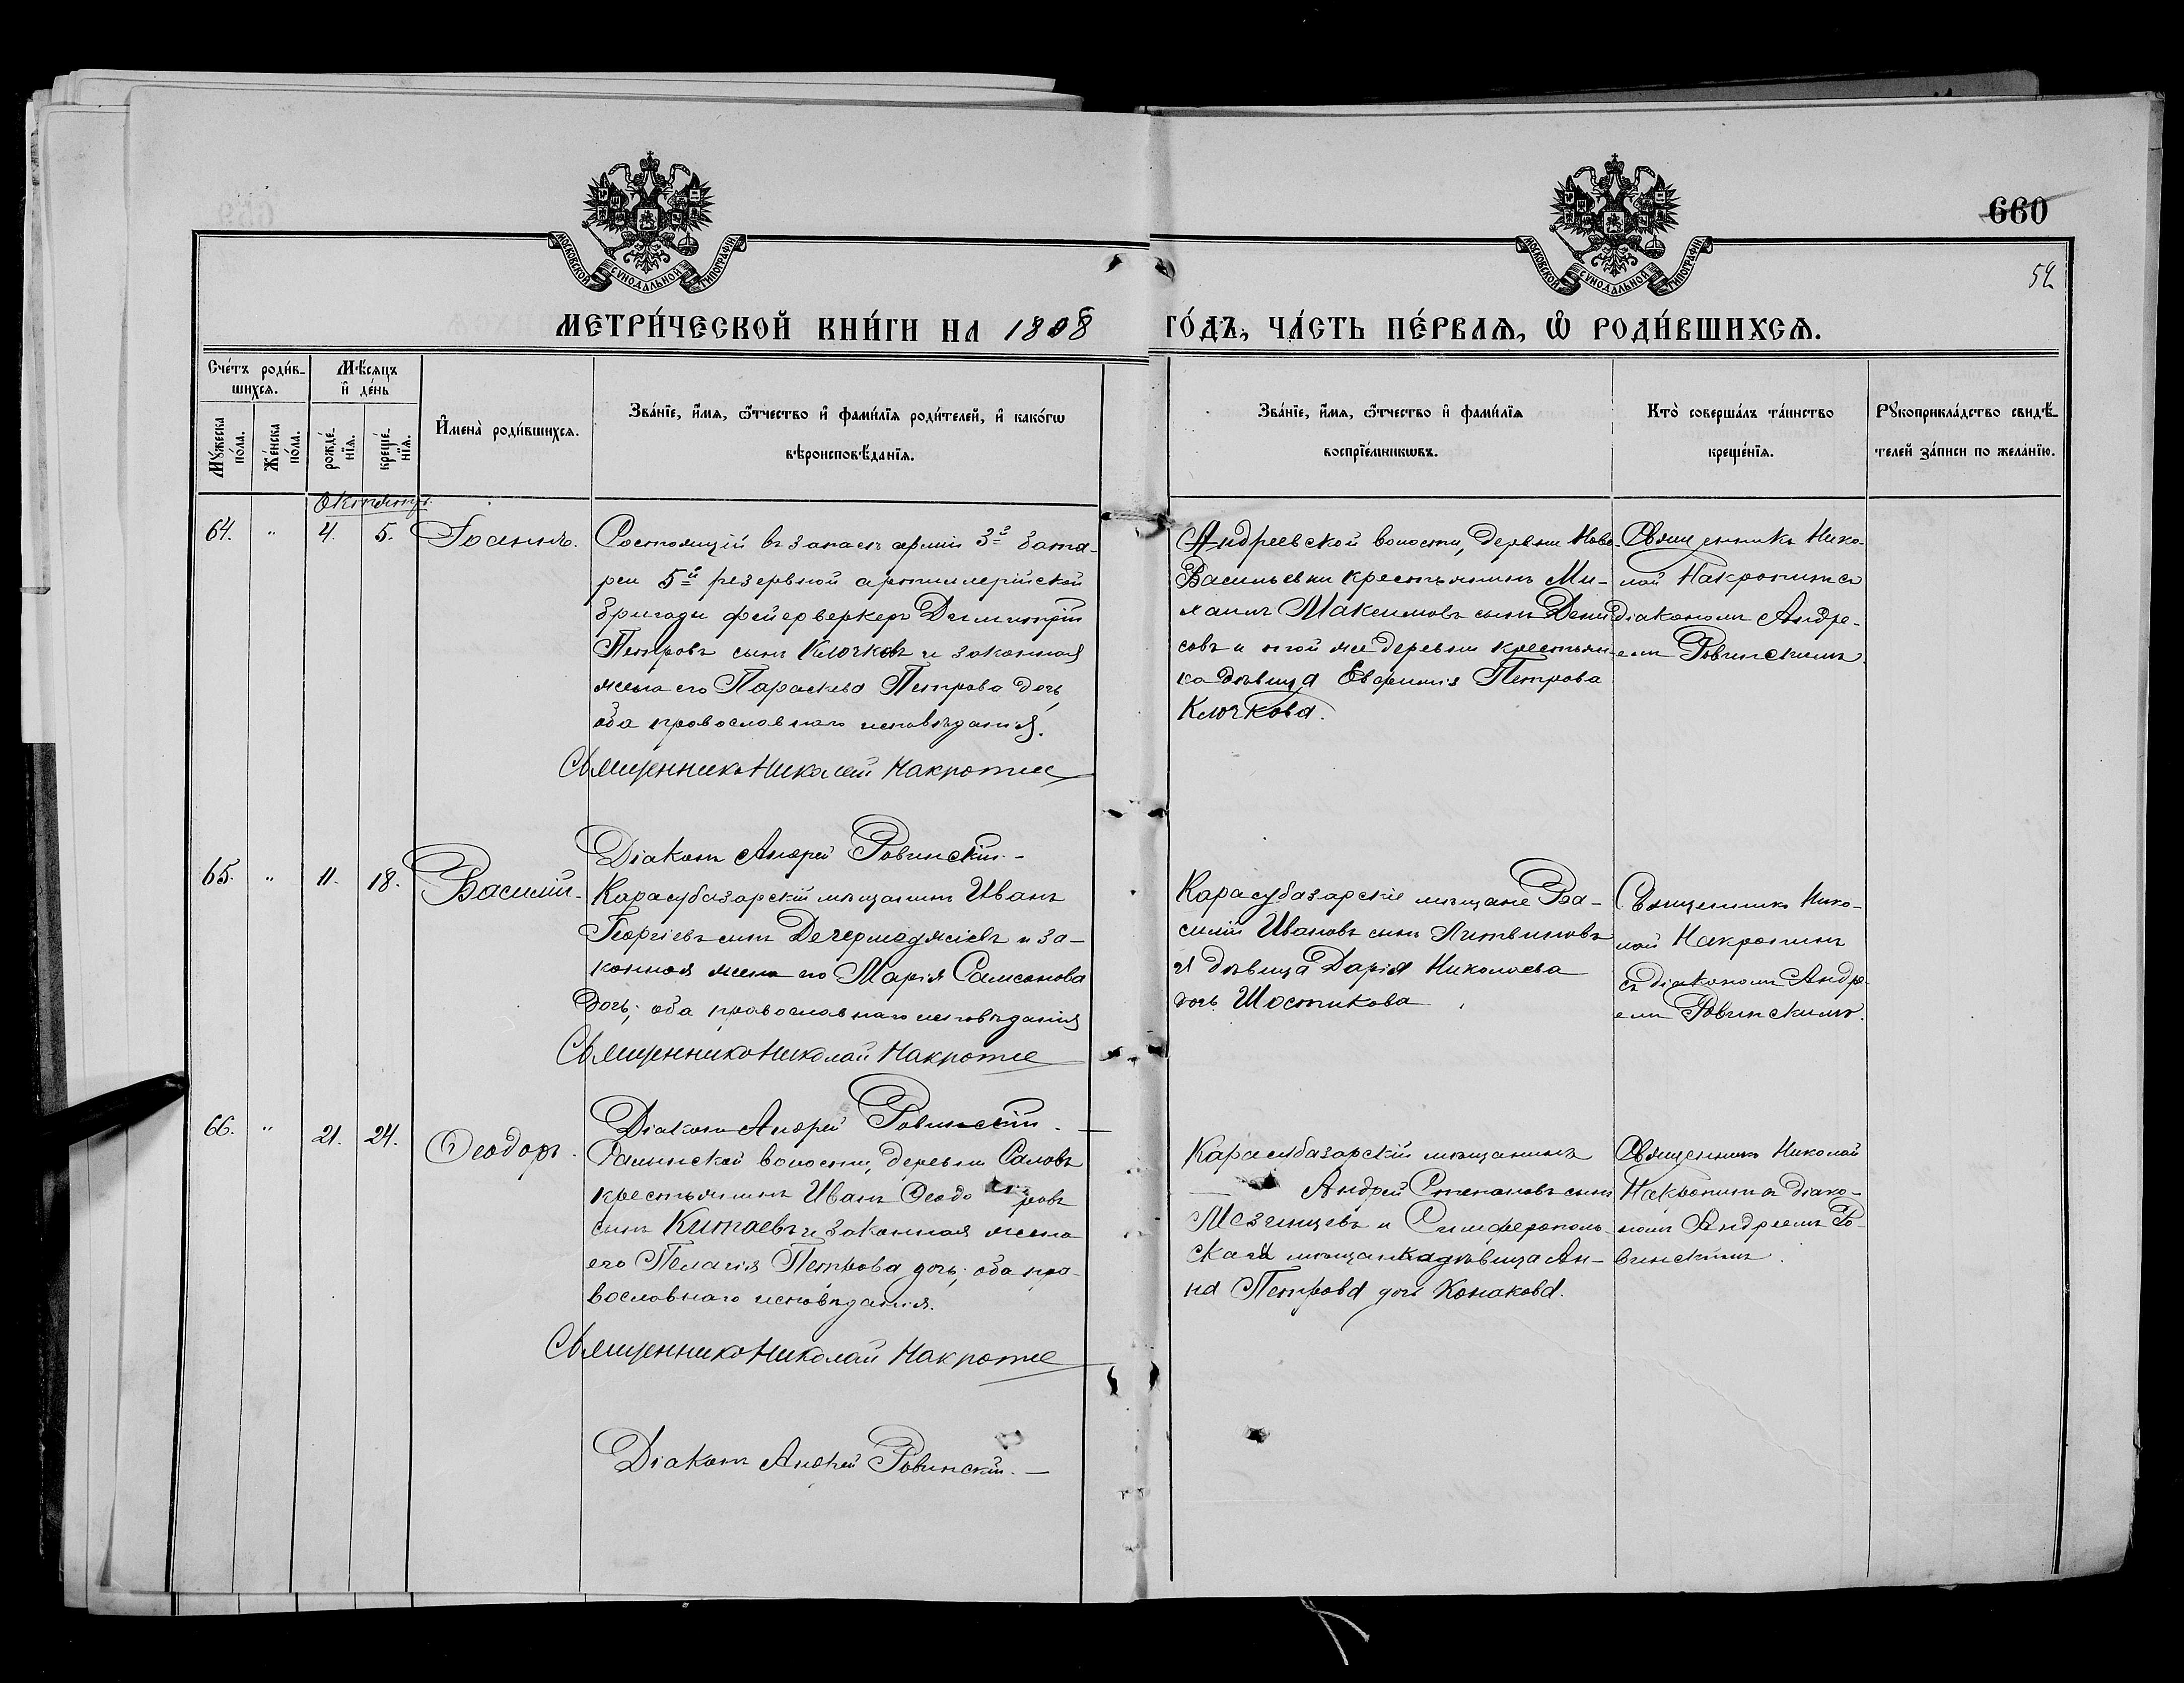 660
54
МОСКОВСКОЙ СѴНОДАЛЬНОЙ ТИПОГРАФІИ
МОСКОВСКОЙ СѴНОДАЛЬНОЙ ТИПОГРАФІИ
МЕТРИ́ЧЕСКОЙ КНИ́ГИ НА 1898 ГО́ДЪ, ЧА́СТЬ ПЕ́РВАѦ, Ѡ҆ РОДИ́ВШИХСѦ.
Сче́тъ роди́в-
шихсѧ.
Мꙋ́жеска по́ла.
Же́нска по́ла.
Мѣ́сѧцъ
и҆ де́нь
рожде́-
нїѧ.
креще́-
нїѧ.
И҆мена̀ роди́вшихсѧ.
Зва́нїе, и҆́мѧ, ѻ҆́тчество и҆ фами́лїѧ роди́телей, и҆ како́гѡ
вѣроисповѣ́данїѧ.
Зва́нїе, и҆́мѧ, ѻ҆́тчество и҆ фами́лїѧ
воспрїе́мникѡвъ.
Кто̀ соверша́лъ та́инство
креще́нїѧ.
Рꙋкоприкла́дство свидѣ́-
телей за́писи по жела́нїю.
Октябрь
64. " 4. 5. Іоаннъ.
Состоящій въ запасѣ арміи 3й бата-
реи 5й резервной артиллерійской
бригады фейерверкеръ Димитрій
Петровъ сынъ Клочковъ и законная
жена его Параскева Петрова дочь,
оба православнаго исповѣданія.
Священникъ Николай Накропинъ
Діаконъ Андрей Ровинскій.-
Андреевской волости, деревни Ново-
Васильевки крестьянинъ Ми-
хаилъ Максимовъ сынъ Дени
совъ и той же деревни крестьян-
ка дѣвица Евфимія Петрова
Клочкова.
Священникъ Нико-
лай Накропинъ съ
діакономъ Андре-
емъ Ровинскимъ.
65. " 11. 18. Василій.
Карасубазарскій мѣщанинъ Иванъ
Георгіевъ сынъ Дегермеджіевъ и за-
конная жена его Марія Самсонова
дочь; оба православнаго исповѣданія
Священникъ Николай Накропинъ
Діаконъ Андрей Ровинскій.
Карасубазарскіе мѣщане Ва-
силій Ивановъ сынъ Литвиновъ
и дѣвица Дарія Николаева
дочь Шостикова
Священникъ Нико-
лай Накропинъ
съ діакономъ Андре
емъ Ровинскимъ.
66. " 21. 24. Ѳеодоръ.
волости, деревни Саловъ
крестьянинъ Иванъ Ѳеодоровъ
сынъ Китаевъ и законная жена
его Пелагія Петрова дочь; оба пра-
вославнаго исповѣданія.
Священникъ Николай Накропинъ
Діаконъ Андрей Ровинскій.-
Карасубазарскій мѣщанинъ
Андрей Степановъ сынъ
Мезинцевъ и Симферополь-
ская мѣщанка дѣвица Ан-
на Петрова дочь Конакова.
Священникъ Николай
Накропинъ съ діако-
номъ Андреемъ Ро-
винскимъ.